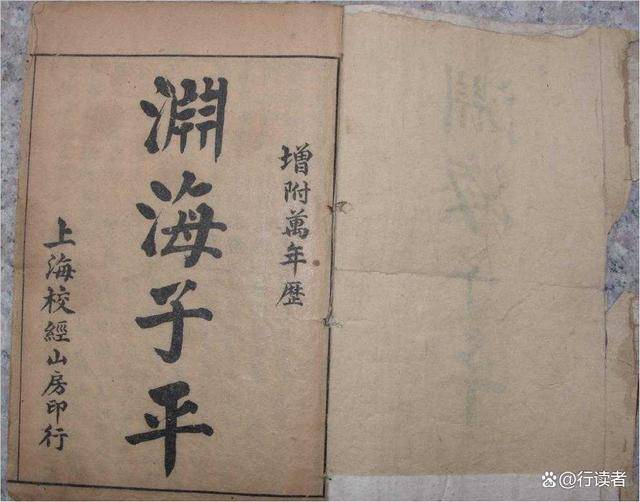 增附萬年歷
淵海子平
上海校經山房印行
行读者